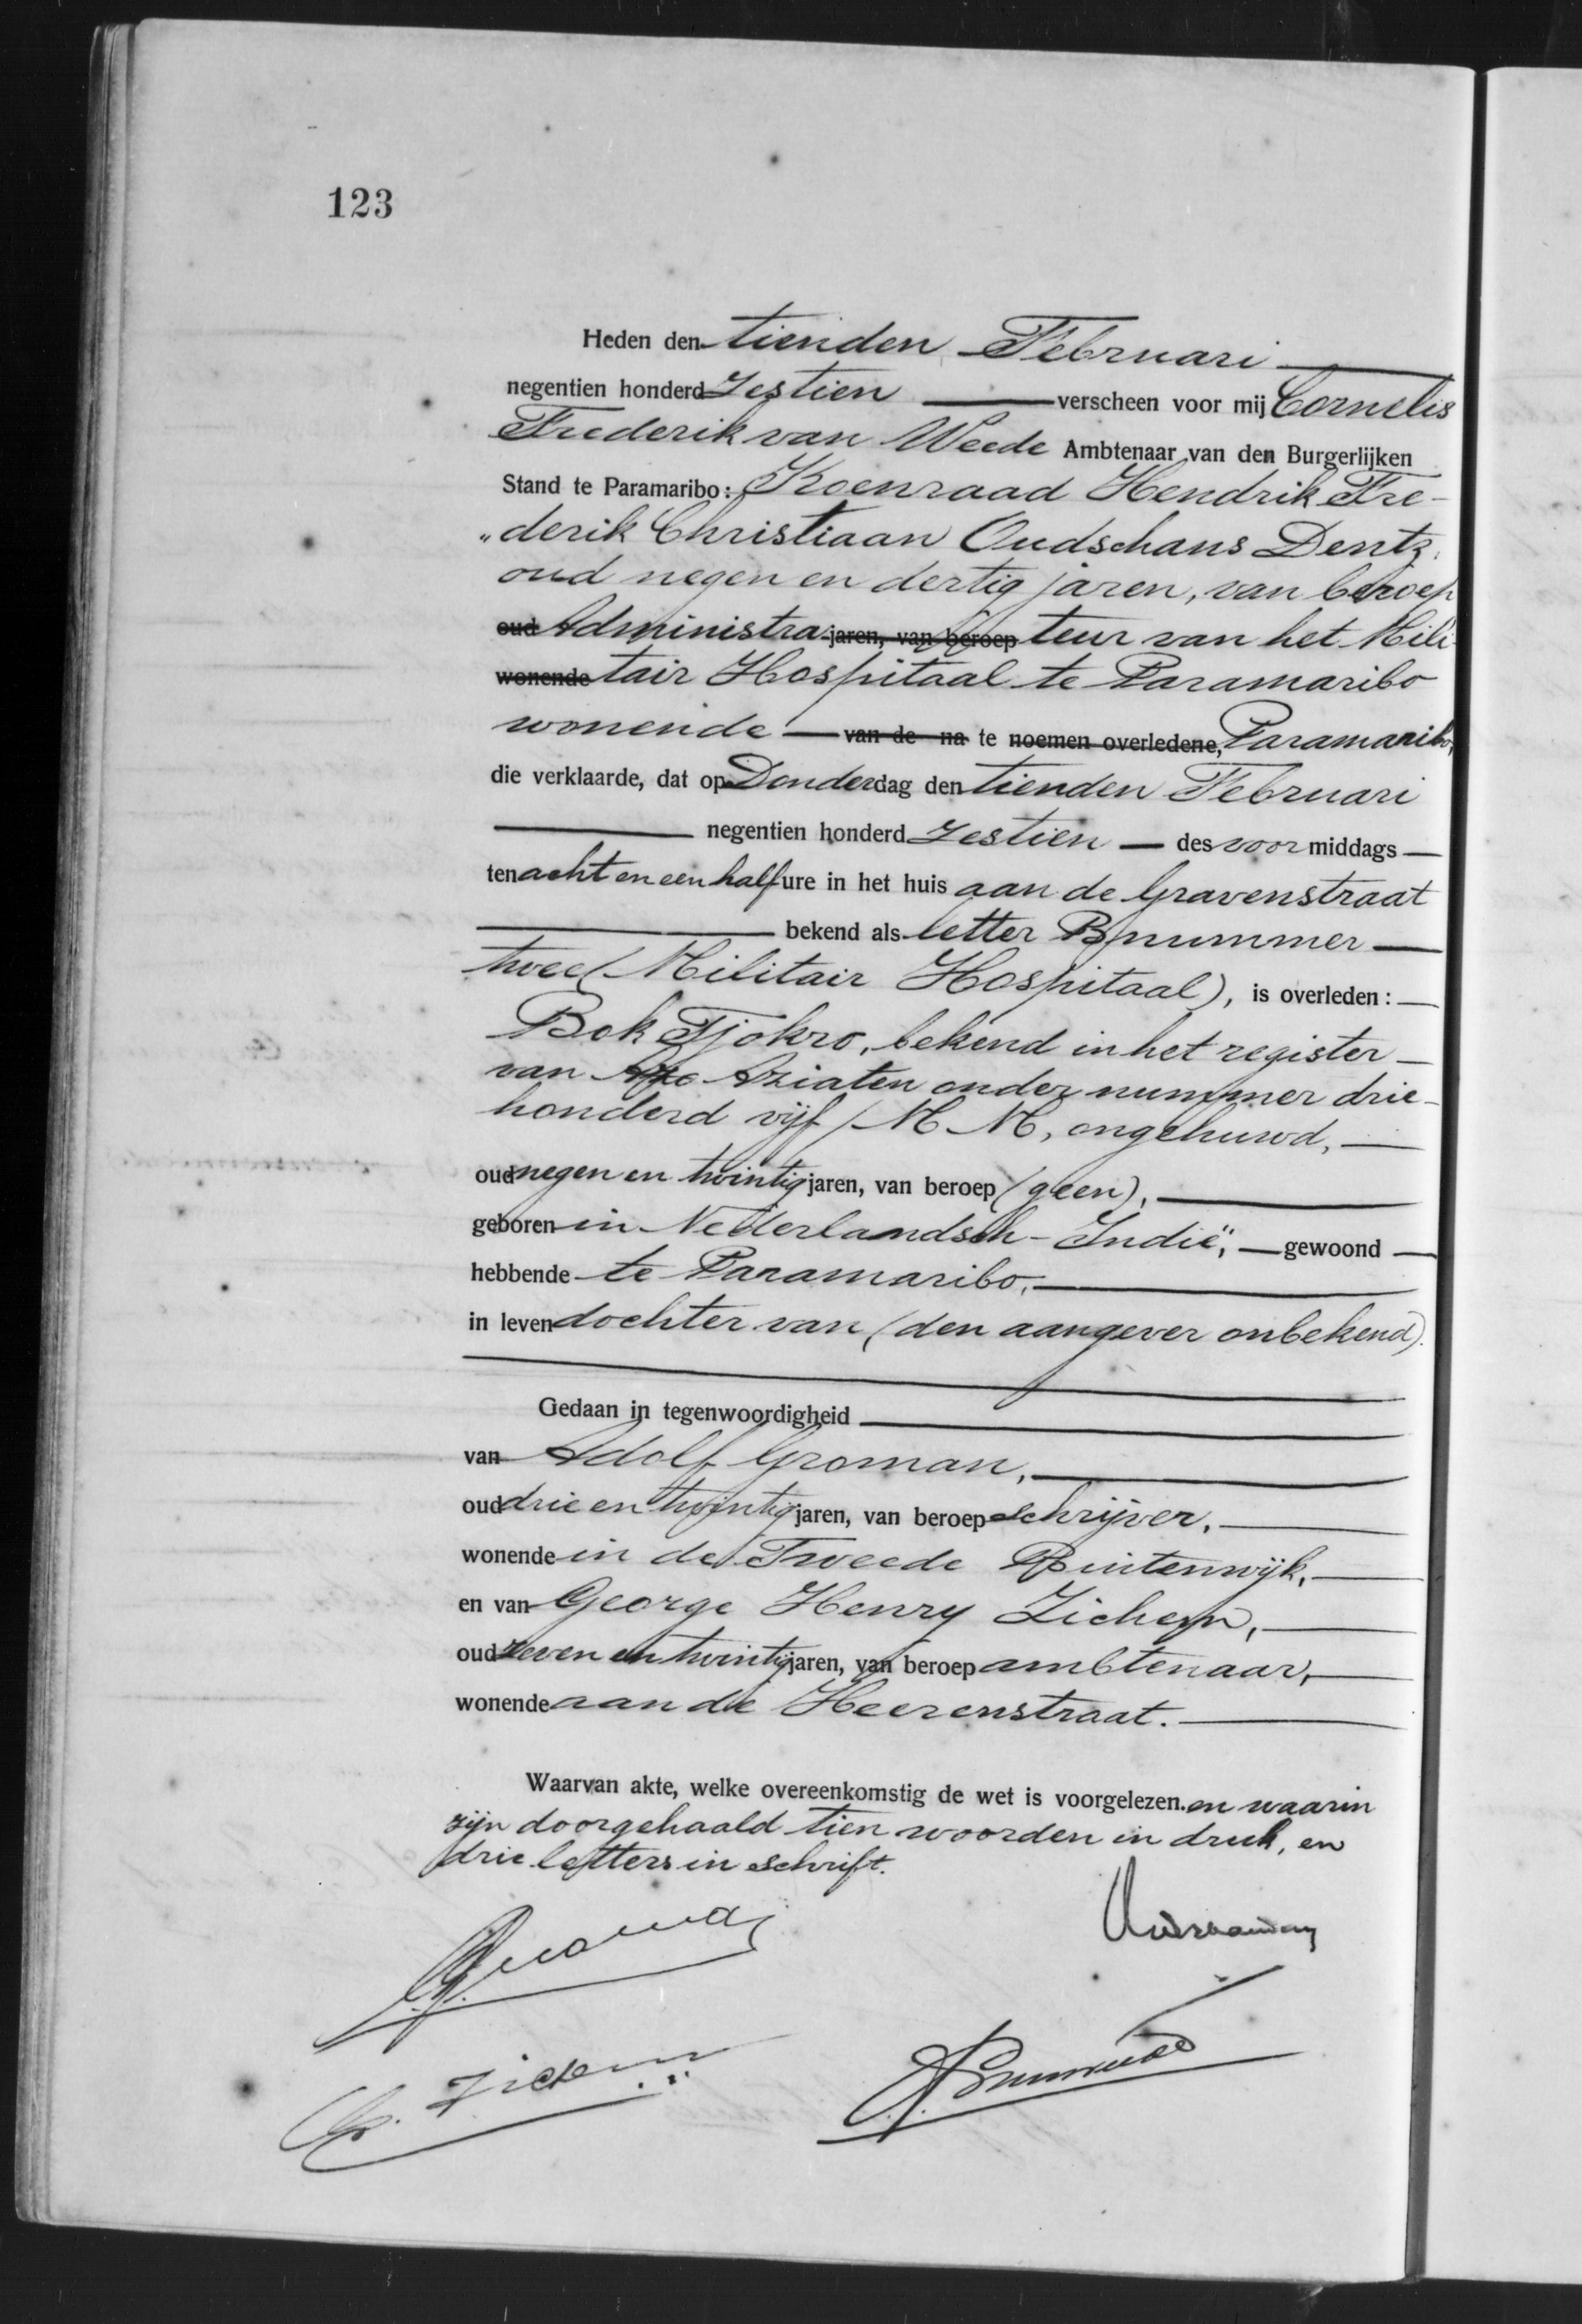 123
Heden den tienden Februari
negentien honderd Zestien verscheen voor mij Cornelis
Frederik van Weede Ambtenaar van den Burgerlijken
Stand te Paramaribo: Koenraad Hendrik Fre-
„derik Christiaan Oudschans Dentz,
oud negen en dertig jaren, van beroep
oud Administra jaren, van beroep teur van het Mili-
wonende tair Hospitaal te Paramaribo
wonende van de na te noemen overledene, Paramaribo,
die verklaarde, dat op Donderdag den tienden Februari
negentien honderd Zestien des voormiddags
ten acht en een half ure in het huis aan de Gravenstraat
bekend als letter B nummer
twee (Militair Hospitaal), is overleden:
Bok Tjokro, bekend in het register
van Aziaten onder nummer drie-
honderd vijf / M M, ongehuwd,
oud negen en twintig jaren, van beroep (geen),
geboren in Nederlandsch-Indië, gewoond
hebbende te Paramaribo,
in leven dochter van (den aangever onbekend).
Gedaan in tegenwoordigheid
van Adolf Groman,
oud drie en twintig jaren, van beroep schrijver,
wonende in de Tweede Buitenwijk,
en van George Henry Zichem,
oud zeven en twintig jaren, van beroep ambtenaar,
wonende aan de Heerenstraat.
Waarvan akte, welke overeenkomstig de wet is voorgelezen. en waarin
zijn doorgehaald tien woorden in druk, en
drie letters in schrift.
Zichem